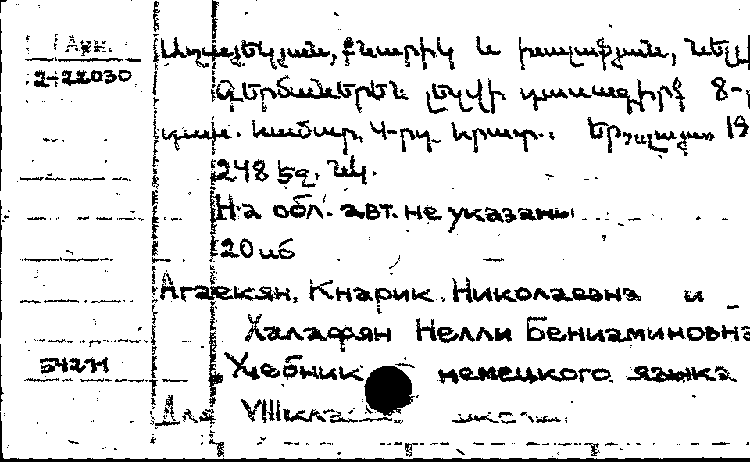 Арм.
2-22030
Աղաբեկյան, Քնարիկ և Խալաֆյան, Նելլի
Գերմաներեն լեզվի դասագիրք 8-
դաս. համար. 4-րդ հրատ.: Երևան 19
248 էջ. նկ.
На обл. авт. не указаны
20 иб
Кнарик Николаевна и
Халафян Нелли Бениаминовна
54271
Учебник немецкого языка
Для VIII кла